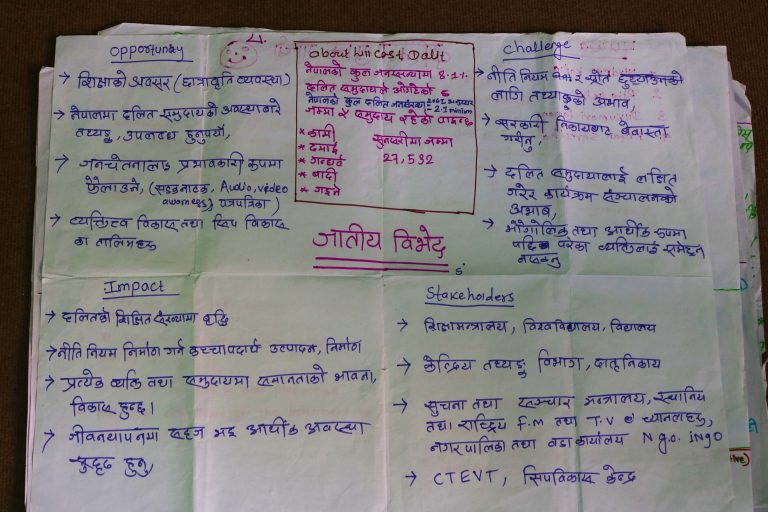 opportunity
→ शिक्षाको अवसर (छात्रवृति व्यवस्था)
→ नेपालमा दलित समुदायको अवस्थाबारे
तथ्याङ्क, उपलब्ध हुनुपर्यो,
→ जनचेतनालाई प्रभावकारी रूपमा
फैलाउने, (सडकनाटक, Audio, video
awarness, पत्रपत्रिका)
→ व्यक्तित्व विकास तथा सिप विकास
का तालिमहरु
4.
About hill cast Dalit
नेपालको कुल जनसंख्यामा 8.1%
दलित समुदायले ओगटेको
नेपालको कुल दलित जनसंख्या
जम्मा ५ समुदाय रहेको पाइन्छ
* कामी
* दमाई
* गन्धर्व
* बादी
* गाइने
सुनसरीमा जम्मा
27,532
challenge
→ नीति नियम
लागि तथ्याङ्कको अभाव,
→ सरकारी निकायबाट बेवास्ता
गरीनु,
→ दलित समुदायलाई लक्षित
गरेर कार्यक्रम संचालनको
अभाव,
→ भौगोलिक तथा आर्थीक रुपमा
पछि परेका व्यक्तिलाई समेट्न
नसक्नु
जातीय विभेद
Impact
→ दलितको शिक्षित संख्यामा वृद्धि
→ नीति नियम निर्माण गर्न कच्चापदार्थ उत्पादन, निर्माण
→ प्रत्येक व्यक्ति तथा समुदायमा समानताको भावना,
विकास हुन्छ।
→ जीवनयापनमा सहज भइ आर्थीक अवस्था
सुदृढ हुनु,
Stakeholders
→ शिक्षामन्त्रालय, विश्वविद्यालय, विद्यालय
→ केन्द्रिय तथ्याङ्क विभाग, दातृनिकाय
→ सुचना तथा संञ्चार मन्त्रालय, स्थानिय
तथा राष्ट्रिय F.M तथा T.V च्यानलहरु,
नगरपालिका तथा वडा कार्यालय Ngo. iNGO
→ CTEVT, सिपविकास केन्द्र